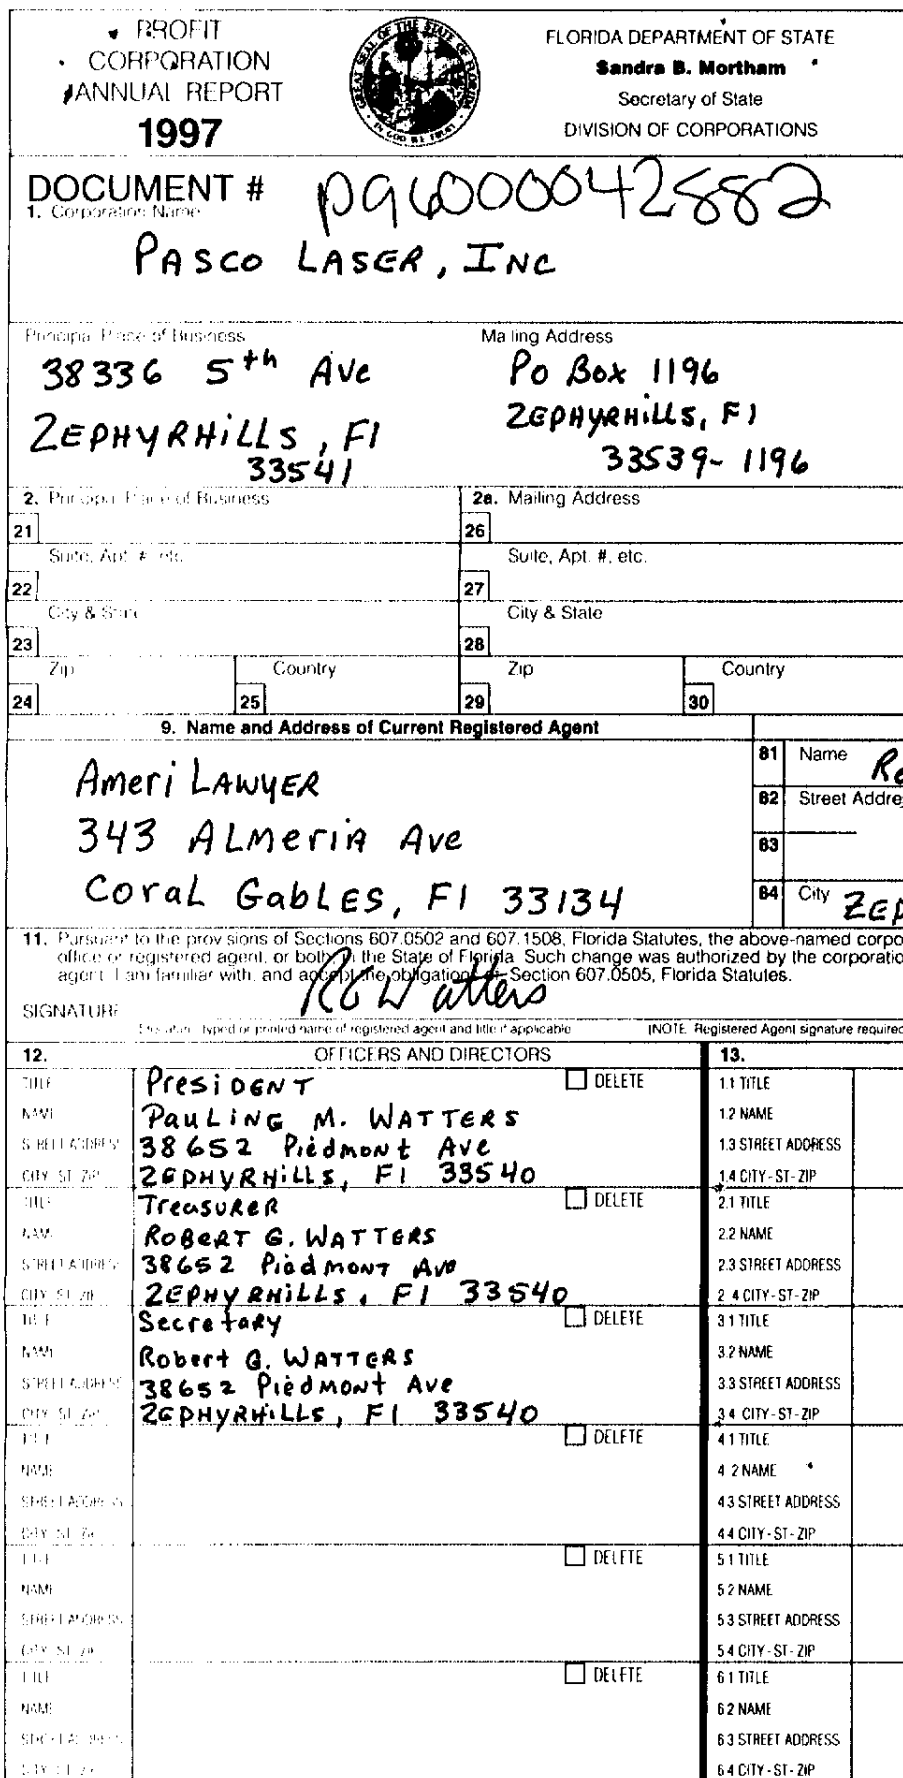 PROFIT
CORPORATION
ANNUAL REPORT
1997
GREAT SEAL OF THE STATE OF FLORIDA
IN GOD WE TRUST
FLORIDA DEPARTMENT OF STATE
Sandra B. Mortham
Secretary of State
DIVISION OF CORPORATIONS
DOCUMENT # P96000042882
1. Corporation Name
PASCO LASER, INC
Principal Place of Business
38336 5th Ave
ZEPHYRHILLS, Fl
33541
Mailing Address
Po Box 1196
ZEPHYRHILLS, Fl
33539-1196
2. Principal Place of Business
21
Suite, Apt. #, etc.
22
City & State
23
Zip
24
Country
25
2a. Mailing Address
26
Suite, Apt. #, etc.
27
City & State
28
Zip
29
Country
30
9. Name and Address of Current Registered Agent
Ameri LAWYER
343 ALMeriA Ave
CoraL GabLES, Fl 33134
81 Name Ro
82 Street Addre
83
84 City ZEP
11. Pursuant to the provisions of Sections 607.0502 and 607.1508, Florida Statutes, the above-named corpo
office or registered agent, or both, in the State of Florida. Such change was authorized by the corporatio
agent. I am familiar with, and accept the obligations of, Section 607.0505, Florida Statutes.
SIGNATURE RG Watters
Signature, typed or printed name of registered agent and title if applicable (NOTE: Registered Agent signature required
12. OFFICERS AND DIRECTORS
TITLE PresiDENT DELETE
NAME PauLINE M. WATTERS
STREET ADDRESS 38652 Piedmont Ave
CITY-ST-ZIP ZEPHYRHILLS, Fl 33540
TITLE TreasureR DELETE
NAME ROBERT G. WATTERS
STREET ADDRESS 38652 PiedMONT Ave
CITY-ST-ZIP ZEPHYRHILLS, Fl 33540
TITLE SecretaRy DELETE
NAME Robert G. WATTERS
STREET ADDRESS 38652 PiedMont Ave
CITY-ST-ZIP ZEPHYRHILLS, Fl 33540
TITLE DELETE
NAME
STREET ADDRESS
CITY-ST-ZIP
TITLE DELETE
NAME
STREET ADDRESS
CITY-ST-ZIP
TITLE DELETE
NAME
STREET ADDRESS
CITY-ST-ZIP
13.
1.1 TITLE
1.2 NAME
1.3 STREET ADDRESS
1.4 CITY-ST-ZIP
2.1 TITLE
2.2 NAME
2.3 STREET ADDRESS
2.4 CITY-ST-ZIP
3.1 TITLE
3.2 NAME
3.3 STREET ADDRESS
3.4 CITY-ST-ZIP
4.1 TITLE
4.2 NAME
4.3 STREET ADDRESS
4.4 CITY-ST-ZIP
5.1 TITLE
5.2 NAME
5.3 STREET ADDRESS
5.4 CITY-ST-ZIP
6.1 TITLE
6.2 NAME
6.3 STREET ADDRESS
6.4 CITY-ST-ZIP